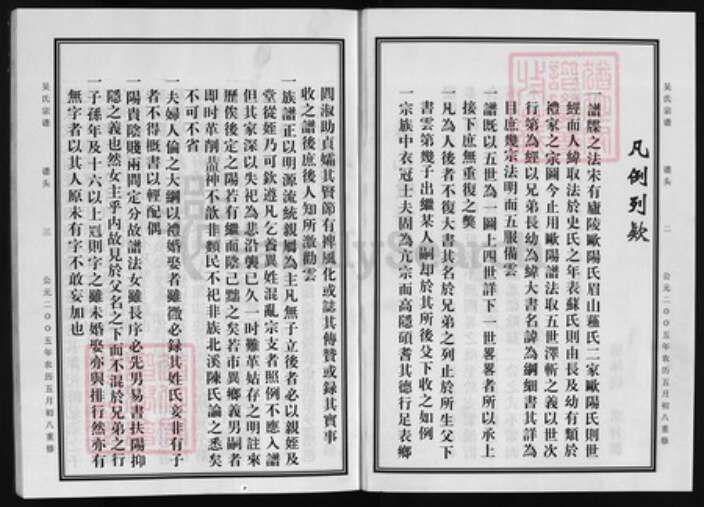 吴氏宗谱 谱头 二 公元二00五年农历五月初八重修
凡例列款
一譜牒之法宋有廬陵歐陽氏眉山蘇氏二家歐陽氏則世
經而人緯取法於史氏之年表蘇氏則由長及幼有類於
禮家之宗圖今止用歐陽譜法取五世澤斬之義以世次
行第為經以兄弟長幼為緯大書名諱為綱細書其詳為
目庶幾宗法明而五服備雲
一譜既以五世為一圖十四世詳下一世畧畧者所以承上
接下庶無重復之獘
一凡為人後者不復大書其名於兄弟之列止於所生父下
書雲第幾子出繼某人嗣却於其所後父下收之如例
一宗族中衣冠士夫固為亢宗而高隱碩耆其德行足表鄉
閭淑助貞孀其賢節有裨風化或誌其傳贊或録其實事
收之譜後庶後人知所激勸雲
一族譜正以明源流統親屬為主凡無子立後者必以親姪及
堂從姪乃可欽遵凡乞養異姓混亂宗支者照例不應入譜
但其家深以失祀為悲沿襲已久一时難革姑存之明註來
歷俟後定之陽若有繼而陰已黜之矣若市異鄉義男嗣者
即时革削葢神不歆非類民不祀非族北溪陳氏論之悉矣
不可不省
一夫婦人倫之大綱以禮婚娶者雖微必録其姓氏妾非有子
者不得概書以輕配偶
一陽貴陰賤兩間定分故譜法女雖長序必先男易書扶陽抑
隱之義也然女主乎內故見於父名之下而不混於兄弟之行
一子孫年及十六以上冠則字之雖未婚娶亦與排行然亦有
無字者以其人原未有字不敢妄加也
吴氏宗谱 谱头 三 公元二00五年农历五月初八重修